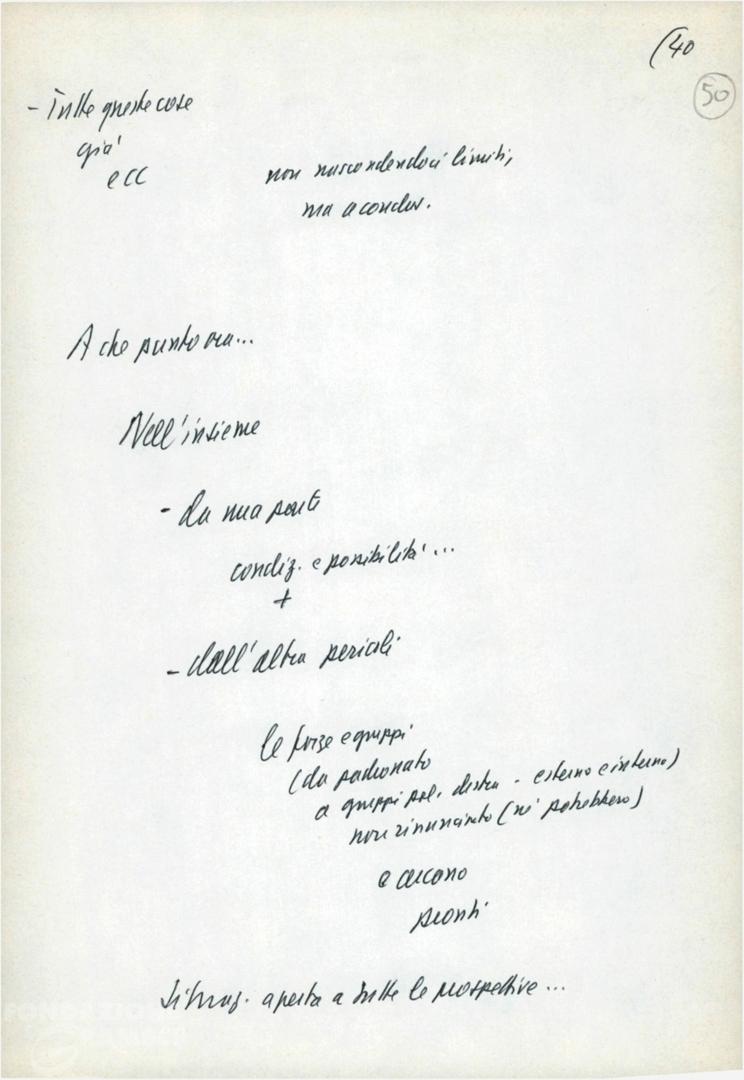 (40
50
- Tutte queste cose
già
ecc
non nascondendoci limiti,
ma a conclus.
A che punto ora...
Nell'insieme
- da una parte
condiz. e possibilità...
+
- dall'altra pericoli
le forze e gruppi
(da padronato
a gruppi pol. destra - esterno e interno)
non rinunciato (né potrebbero)
e cercano
pronti
Situaz. aperta a tutte le prospettive...
FONDAZIONE